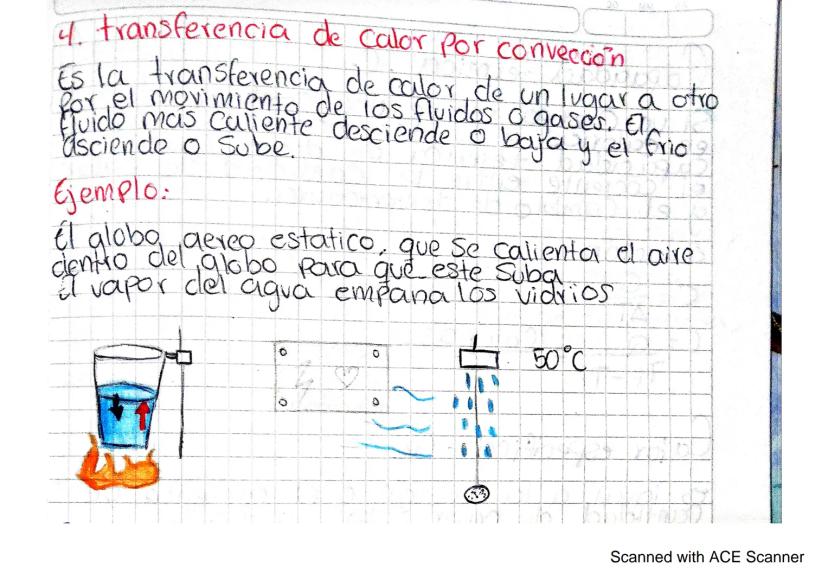 4. transferencia de calor por convección
Es la transferencia de calor de un lugar a otro
por el movimiento de los fluidos o gases. El
fluido mas caliente desciende o baja y el frio
asciende o sube.
Ejemplo:
El globo aereo estatico, que se calienta el aire
dentro del globo para que este suba
El vapor del agua empaña los vidrios
50°C
Scanned with ACE Scanner